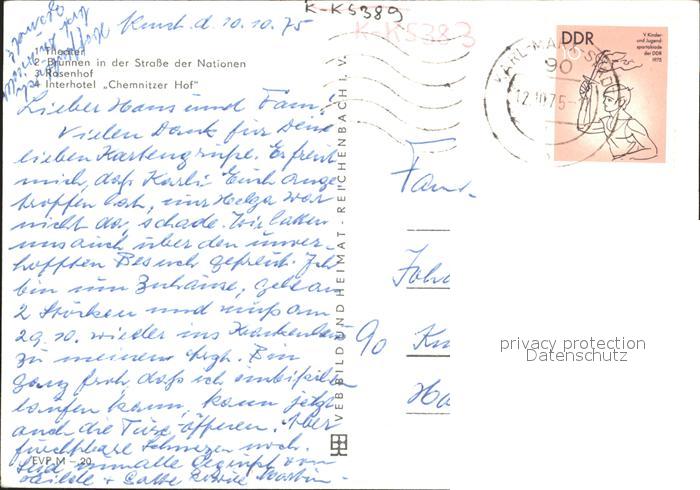 K-K5389
K-K5383
Kmst. d. 10.10.75
1 Theater
2 Brunnen in der Straße der Nationen
3 Rosenhof
4 Interhotel „Chemnitzer Hof"
Lieber Hans und Fam.!
Vielen Dank für Deine
lieben Kartengrüße. Es freut
mich, daß Karli Euch ange
troffen hat, nur Helga war
nicht da, schade. Wir haben
uns auch über den unver-
hofften Besuch gefreut. Ich
bin nun Zuhause, gehe an
2 Stöcken und muß am
29.10. wieder ins Krankenhaus
zu meinem Bin
ganz froh, daß ich ein bißchen
laufen kann, kann jetzt
auch die Türe öffnen. Aber
furchtbare Schmerzen noch.
Seid nun alle gegrüßt von
+ Gatte sowie Martin
EVP M -.20
VEB BILD UND HEIMAT · REICHENBACH I. V.
DDR
V. Kinder-
und Jugend-
spartakiade
der DDR
1975
10
KARL-MARX-STADT
90
12.10.75
Fam.
Joha
90 Km
Ha
privacy protection
Datenschutz